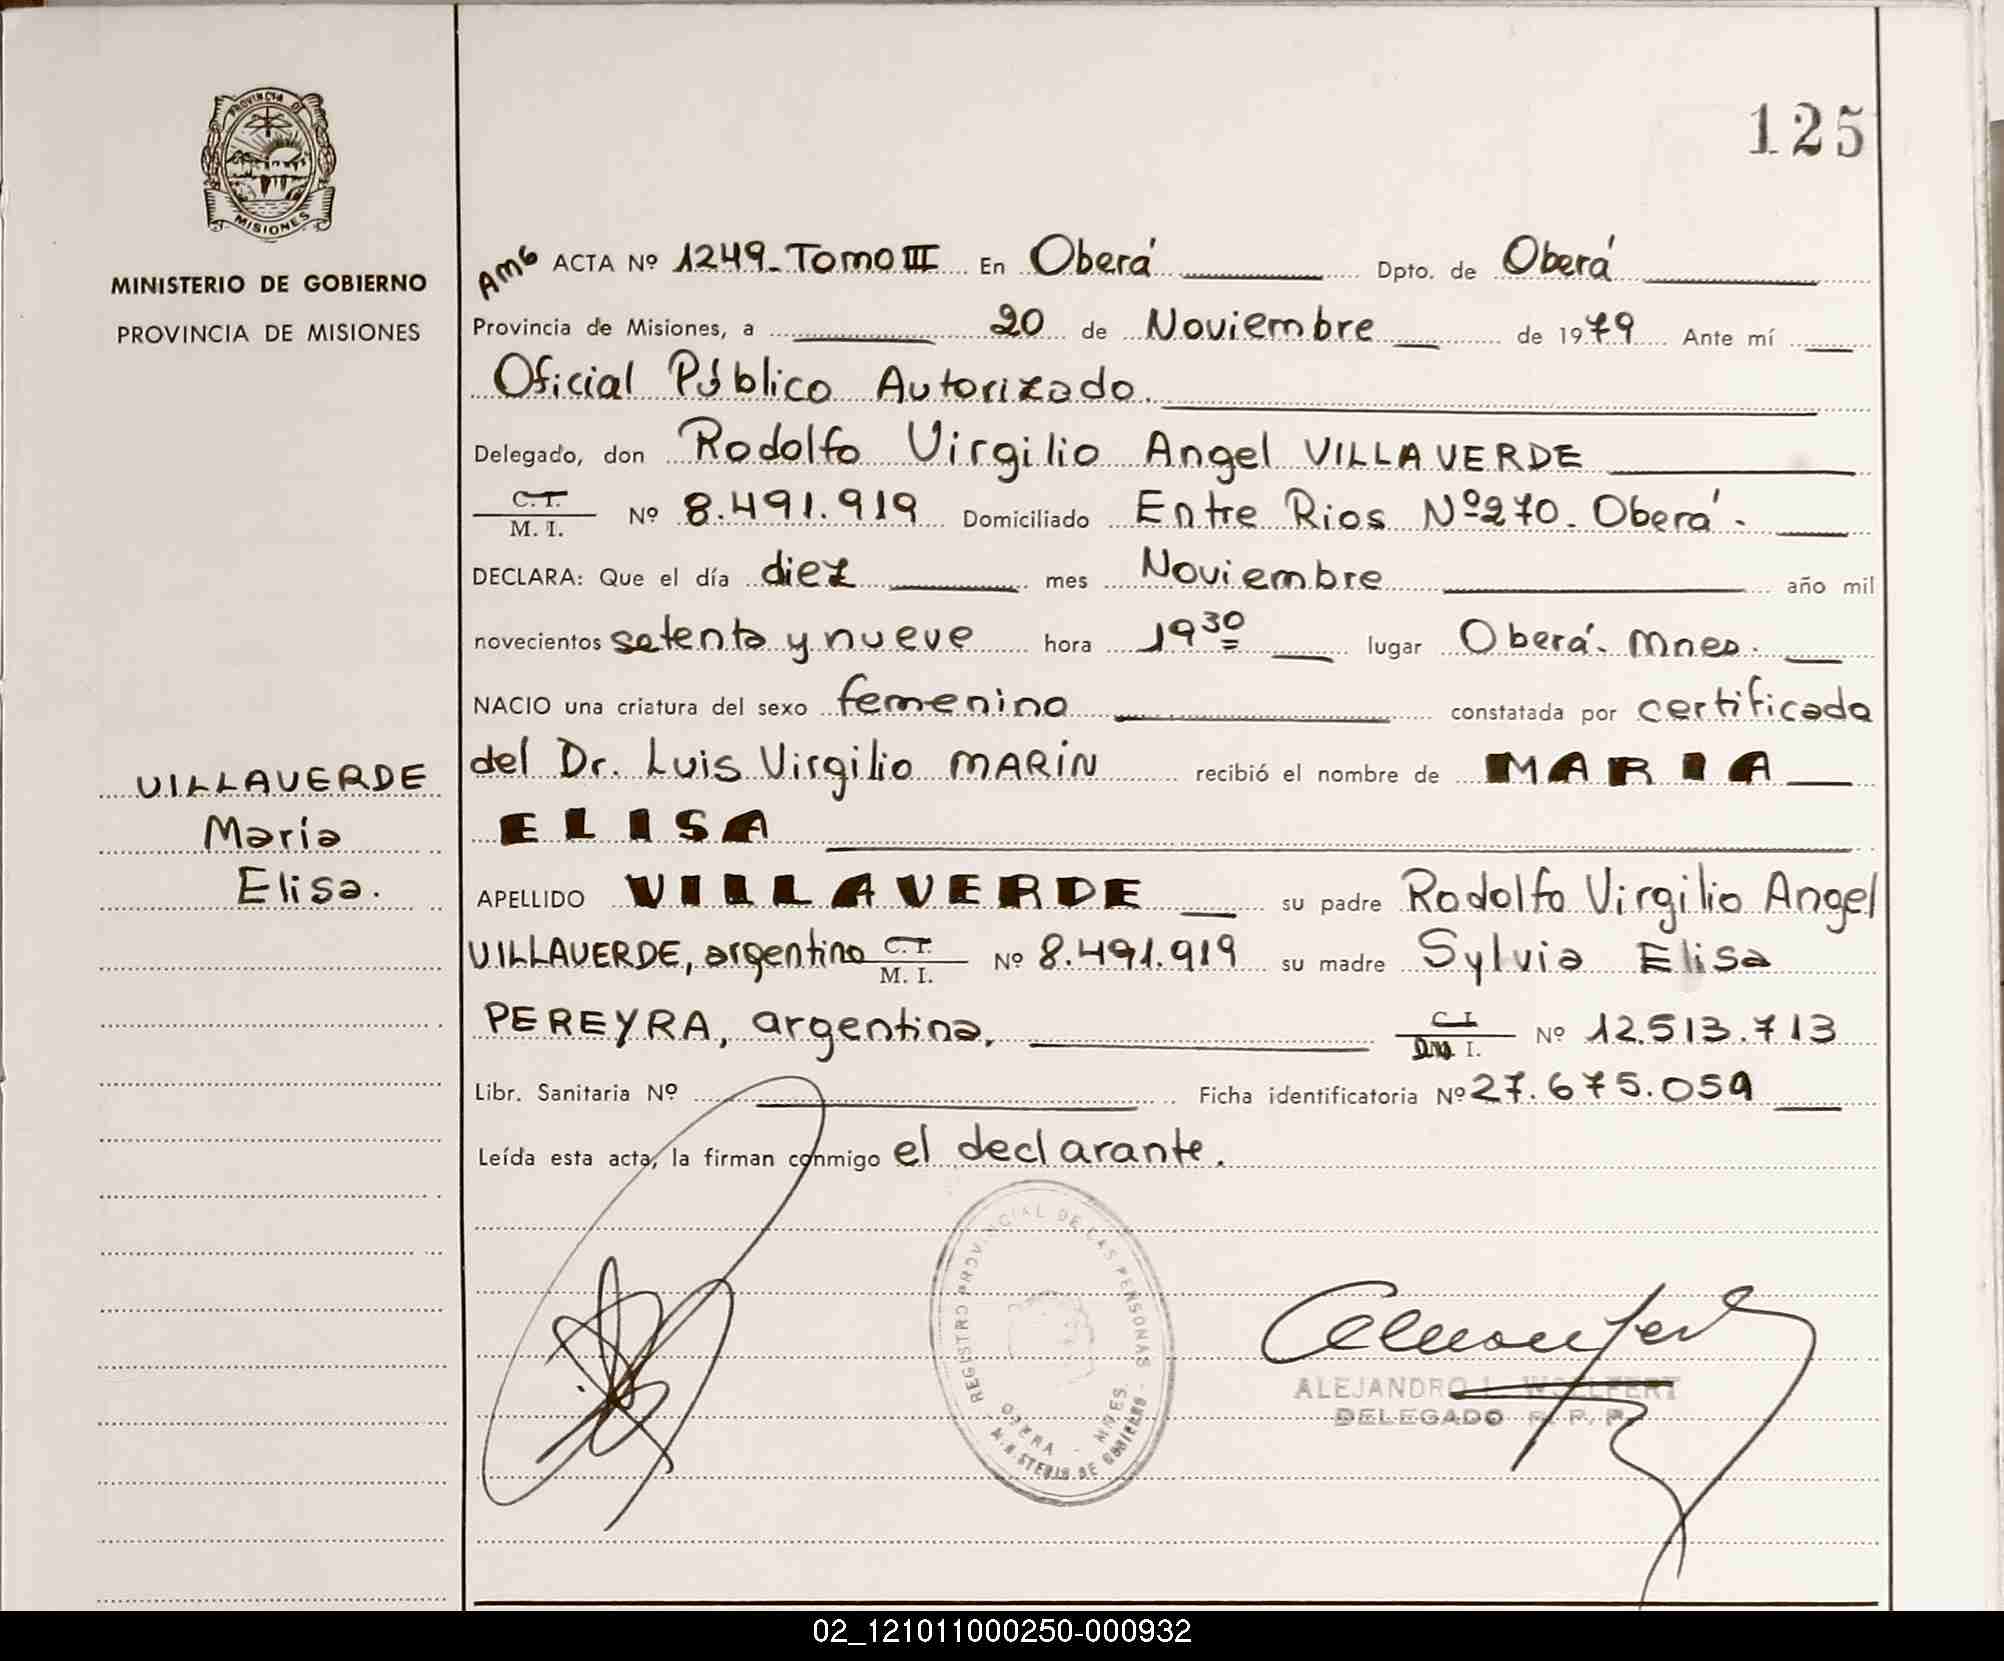 PROVINCIA DE
MISIONES
MINISTERIO DE GOBIERNO
PROVINCIA DE MISIONES
125
AMG ACTA Nº 1249_Tomo III En Oberá Dpto. de Oberá
Provincia de Misiones, a 20 de Noviembre de 1979 Ante mí
Oficial Público Autorizado.
Delegado, don Rodolfo Virgilio Angel VILLAVERDE
C. I.
M. I. Nº 8.491.919 Domiciliado Entre Rios Nº 270. Oberá.
DECLARA: Que el día diez mes Noviembre año mil
novecientos setenta y nueve hora 19 30 lugar Oberá. Mnes.
NACIO una criatura del sexo femenino constatada por certificado
del Dr. Luis Virgilio MARIN recibió el nombre de MARIA
ELISA
APELLIDO VILLAVERDE su padre Rodolfo Virgilio Angel
VILLAVERDE, argentino C. I. M. I. Nº 8.491.919 su madre Sylvia Elisa
PEREYRA, argentina, C I. I. Nº 12.513.713
Libr. Sanitaria Nº Ficha identificatoria Nº 27.675.059
Leída esta acta, la firman conmigo el declarante.
VILLAVERDE
María
Elisa.
REGISTRO PROVINCIAL DE LAS PERSONAS
OBERA - MNES.
MINISTERIO DE GOBIERNO
ALEJANDRO L. WOELFERT
DELEGADO R. P. P.
02_121011000250-000932